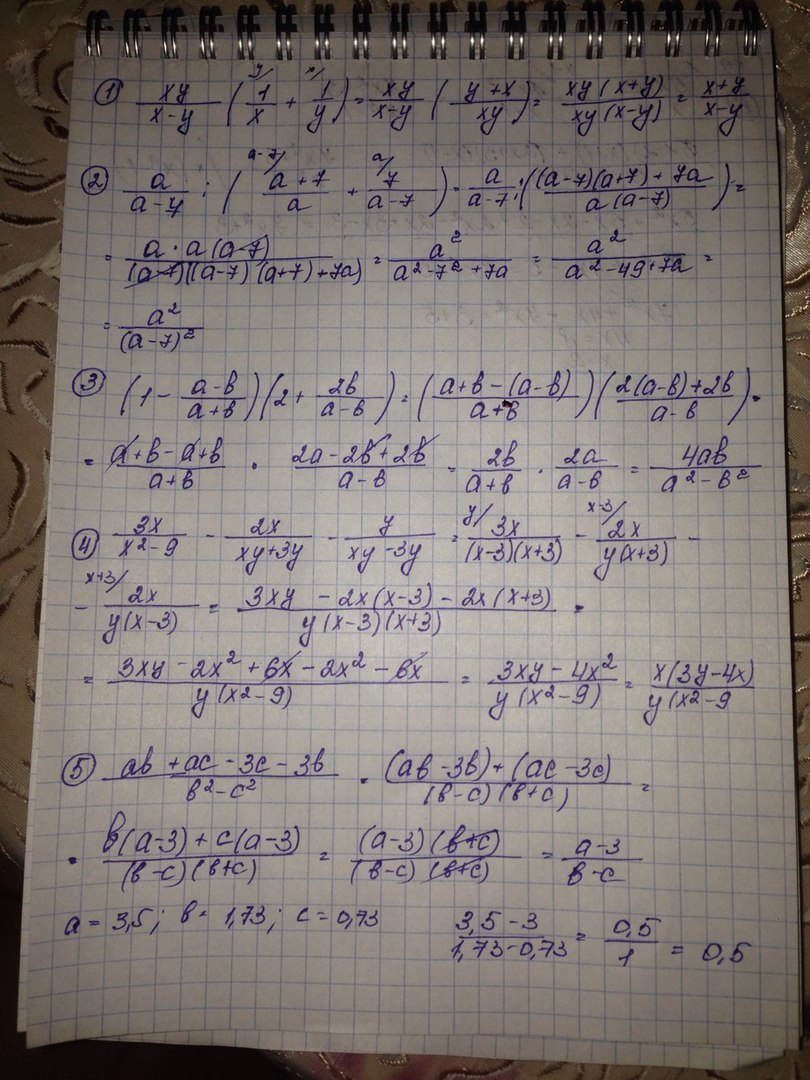 ① xy/(x-y) (1/x + 1/y) = xy/(x-y) ((y+x)/xy) = xy(x+y)/(xy(x-y)) = (x+y)/(x-y)
② a/(a-y) : ((a+7)/a + 7/(a-7)) = a/(a-7) : (((a-7)(a+7)+7a)/(a(a-7))) =
= a·a(a-7)/((a-7)((a-7)(a+7)+7a)) = a²/(a²-7²+7a) = a²/(a²-49+7a) =
= a²/(a-7)²
③ (1 - (a-b)/(a+b))(2 + 2b/(a-b)) = ((a+b-(a-b))/(a+b))((2(a-b)+2b)/(a-b)) =
= (a+b-a+b)/(a+b) · (2a-2b+2b)/(a-b) = 2b/(a+b) · 2a/(a-b) = 4ab/(a²-b²)
④ 3x/(x²-9) - 2x/(xy+3y) - y/(xy-3y) = 3x/((x-3)(x+3)) - 2x/(y(x+3)) -
- 2x/(y(x-3)) = (3xy - 2x(x-3) - 2x(x+3))/(y(x-3)(x+3)) =
= (3xy-2x²+6x-2x²-6x)/(y(x²-9)) = (3xy-4x²)/(y(x²-9)) = x(3y-4x)/(y(x²-9
⑤ (ab+ac-3c-3b)/(b²-c²) = ((ab-3b)+(ac-3c))/((b-c)(b+c)) =
= (b(a-3)+c(a-3))/((b-c)(b+c)) = (a-3)(b+c)/((b-c)(b+c)) = (a-3)/(b-c)
a = 3,5; b = 1,73; c = 0,73 (3,5-3)/(1,73-0,73) = 0,5/1 = 0,5